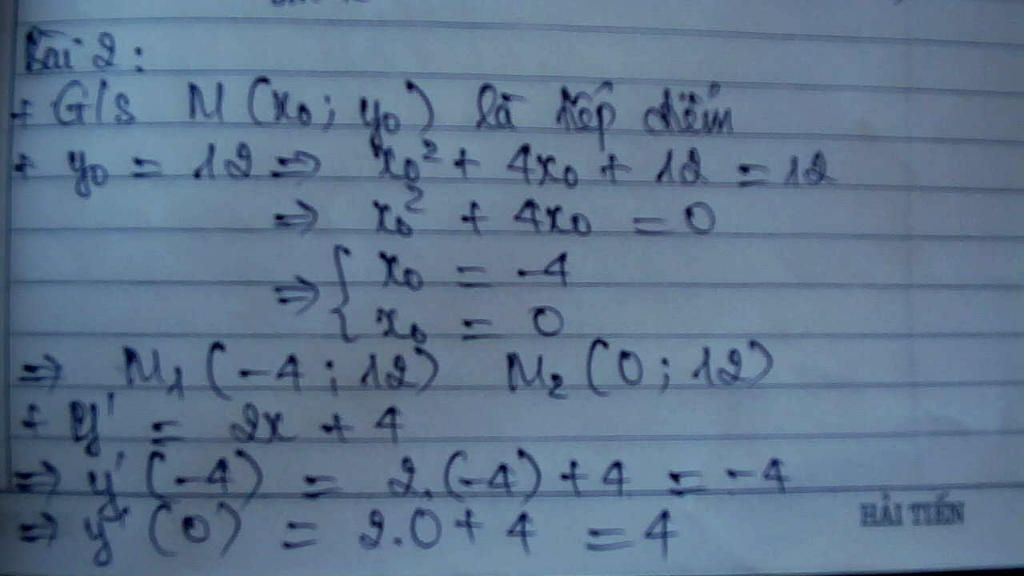 Bài 2:
+ G/s M(x₀; y₀) là tiếp điểm
+ y₀ = 12 => x₀² + 4x₀ + 12 = 12
=> x₀² + 4x₀ = 0
=> { x₀ = -4
x₀ = 0
=> M₁(-4; 12) M₂(0; 12)
+ y' = 2x + 4
=> y'(-4) = 2.(-4) + 4 = -4
=> y'(0) = 2.0 + 4 = 4
HẢI TIẾN